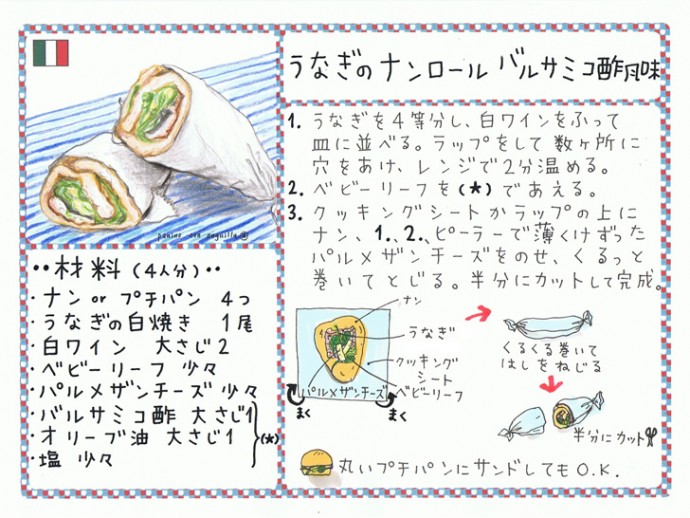 うなぎのナンロール バルサミコ酢風味
1. うなぎを4等分し、白ワインをふって
皿に並べる。ラップをして数ヶ所に
穴をあけ、レンジで2分温める。
2. ベビーリーフを(*)であえる。
3. クッキングシートかラップの上に
ナン、1.、2.、ピーラーで薄くけずった
パルメザンチーズをのせ、くるっと
巻いてとじる。半分にカットして完成。
panino con anguilla
・・材料(4人分)・・
・ナン or プチパン 4つ
・うなぎの白焼き 1尾
・白ワイン 大さじ2
・ベビーリーフ 少々
・パルメザンチーズ 少々
・バルサミコ酢 大さじ1
・オリーブ油 大さじ1
・塩 少々
(*)
ナン
うなぎ
クッキング
シート
ベビーリーフ
パルメザンチーズ
まく
まく
くるくる巻いて
はしをねじる
半分にカット
丸いプチパンにサンドしてもO.K.